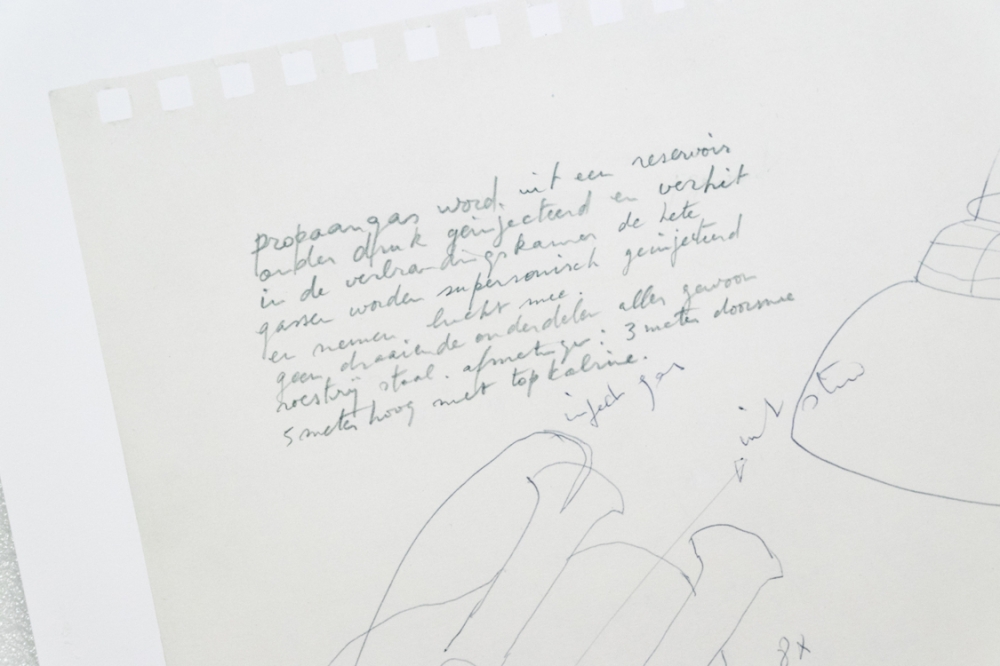 propaangas word. uit een reservoir
onder druk geinjecteerd en verhit
in de verbrandingskamer de hete
gassen worden supersonisch geinjecteerd
en nemen lucht mee.
geen draaiende onderdelen alles gewoon
roestvrij staal. afmetingen: 3 meter doorsnee
5 meter hoog met topkabine.
inject gas
8x